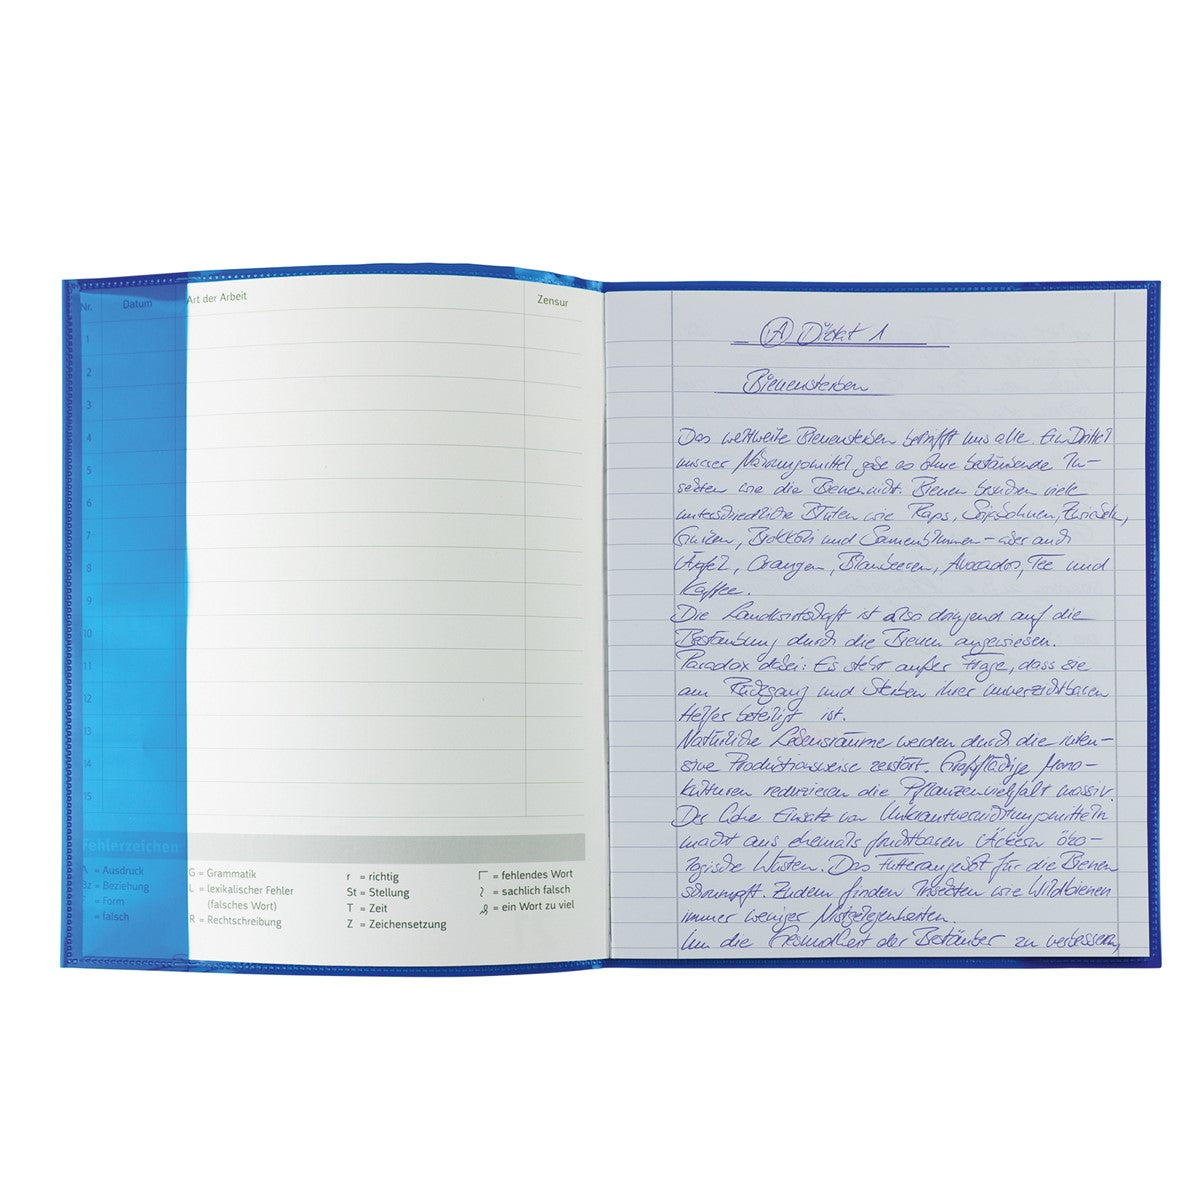 Nr. Datum Art der Arbeit Zensur
1
2
3
4
5
6
7
8
9
10
11
12
13
14
15
Fehlerzeichen
A = Ausdruck
Bz = Beziehung
F = Form
f = falsch
G = Grammatik
L = lexikalischer Fehler
(falsches Wort)
R = Rechtschreibung
r = richtig
St = Stellung
T = Zeit
Z = Zeichensetzung
= fehlendes Wort
= sachlich falsch
= ein Wort zu viel
A Diktat 1
Bienensterben
Das weltweite Bienensterben betrifft uns alle. Ein Drittel
unserer Nahrungsmittel gäbe es ohne bestäubende In-
sekten wie die Biene nicht. Bienen besuchen viele
unterschiedliche Blüten wie Raps, Sojabohnen, Zwiebeln,
Gurken, Brokkoli und Sonnenblumen - aber auch
Äpfel, Orangen, Blaubeeren, Avocados, Tee und
Kaffee.
Die Landwirtschaft ist also dringend auf die
Bestäubung durch die Bienen angewiesen.
Paradox dabei: Es steht außer Frage, dass sie
am Rückgang und Sterben ihrer unverzichtbaren
Helfer beteiligt ist.
Natürliche Lebensräume werden durch die inten-
sive Produktionsweise zerstört. Großflächige Mono-
kulturen reduzieren die Pflanzenvielfalt massiv.
Der hohe Einsatz von Unkrautvernichtungsmitteln
macht aus ehemals fruchtbaren Äckern öko-
logische Wüsten. Das Futterangebot für die Bienen
schrumpft. Zudem finden Insekten wie Wildbienen
immer weniger Nistgelegenheiten.
Um die Gesundheit der Bestäuber zu verbessern,